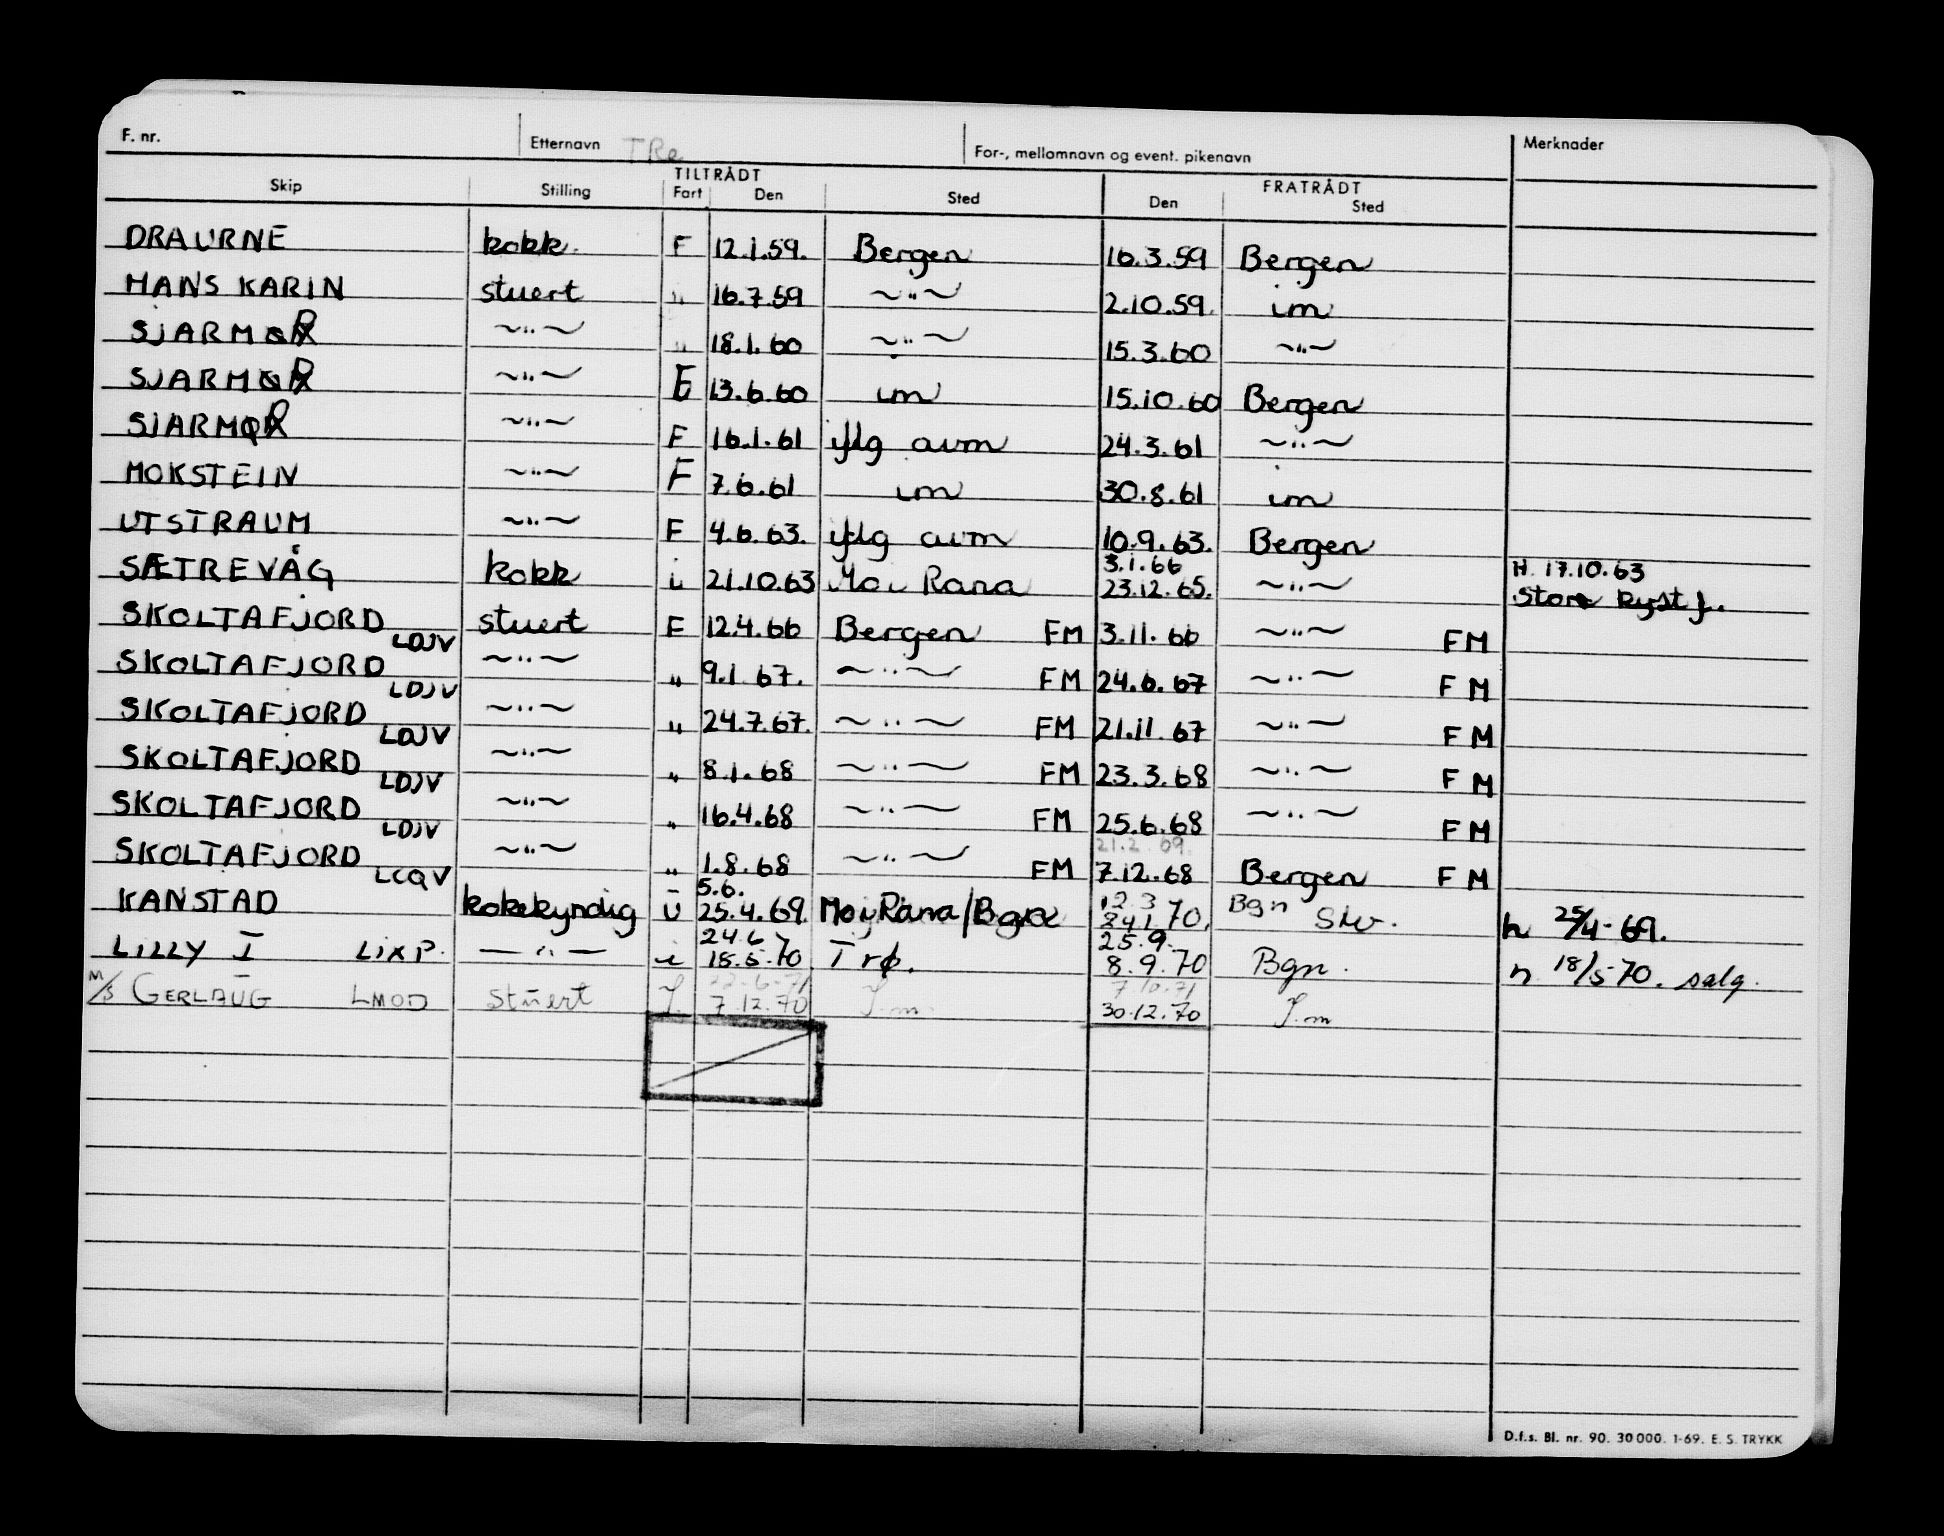 F. nr. Etternavn TRe For-, mellomnavn og event. pikenavn Merknader
TILTRÅDT FRATRÅDT
Skip Stilling Fart Den Sted Den Sted
DRAURNE kokk. F 12.1.59. Bergen 16.3.59 Bergen
HANS KARIN stuert " 16.7.59 ~"~ 2.10.59. im
SJARMØR ~"~ " 18.1.60 ~"~ 15.3.60 ~"~
SJARMØR ~"~ E 13.6.60 im 15.10.60 Bergen
SJARMØR ~"~ F 16.1.61 iflg avm 24.3.61 ~"~
MOKSTEIN ~"~ F 7.6.61 im 30.8.61 im
UTSTRAUM ~"~ F 4.6.63. iflg avm 10.9.63. Bergen
3.1.66 H. 17.10.63
SÆTREVÅG kokk i 21.10.63 Mo i Rana 23.12.65. ~"~ Store kystf.
SKOLTAFJORD LDJV stuert F 12.4.66 Bergen FM 3.11.66 ~"~ FM
SKOLTAFJORD LDJV ~"~ " 9.1.67. ~"~ FM 24.6.67 ~"~ FM
SKOLTAFJORD LDJV ~"~ " 24.7.67. ~"~ FM 21.11.67 ~"~ FM
SKOLTAFJORD LDJV ~"~ " 8.1.68 ~"~ FM 23.3.68 ~"~ FM
SKOLTAFJORD LDJV ~"~ " 16.4.68 ~"~ FM 25.6.68 ~"~ FM
21.2.69.
SKOLTAFJORD LCQV ~"~ " 1.8.68 ~"~ FM 7.12.68 Bergen FM
5.6. 12.3 Bgn
KANSTAD kokekyndig U 25.4.69. Mo i Rana/Bgn 70. Slv. h 25/4-69.
24.6 25.9.
LILLY I LIXP. —"— i 18.5.70 Trø. 8.9.70 Bgn. h 18/5-70. salg.
22-6-71 7.10.71
M/S GERLAUG LMOD stuert I. 7.12.70 I.m 30.12.70 I.m
D.f.s. Bl. nr. 90. 30000. 1-69. E. S. TRYKK